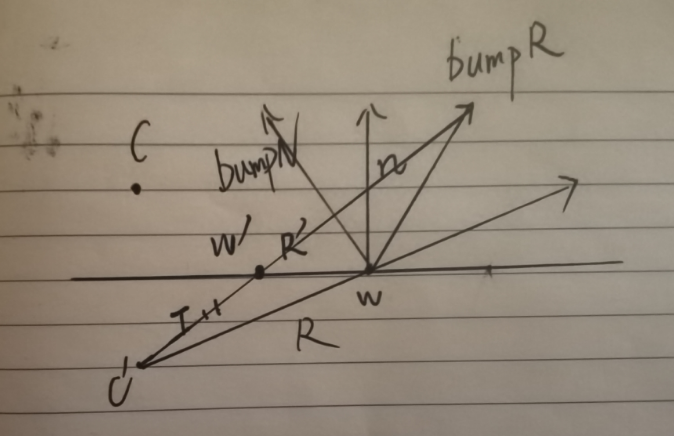 bumpR
C
bumpN
n
W'
R'
W
I
R
C'